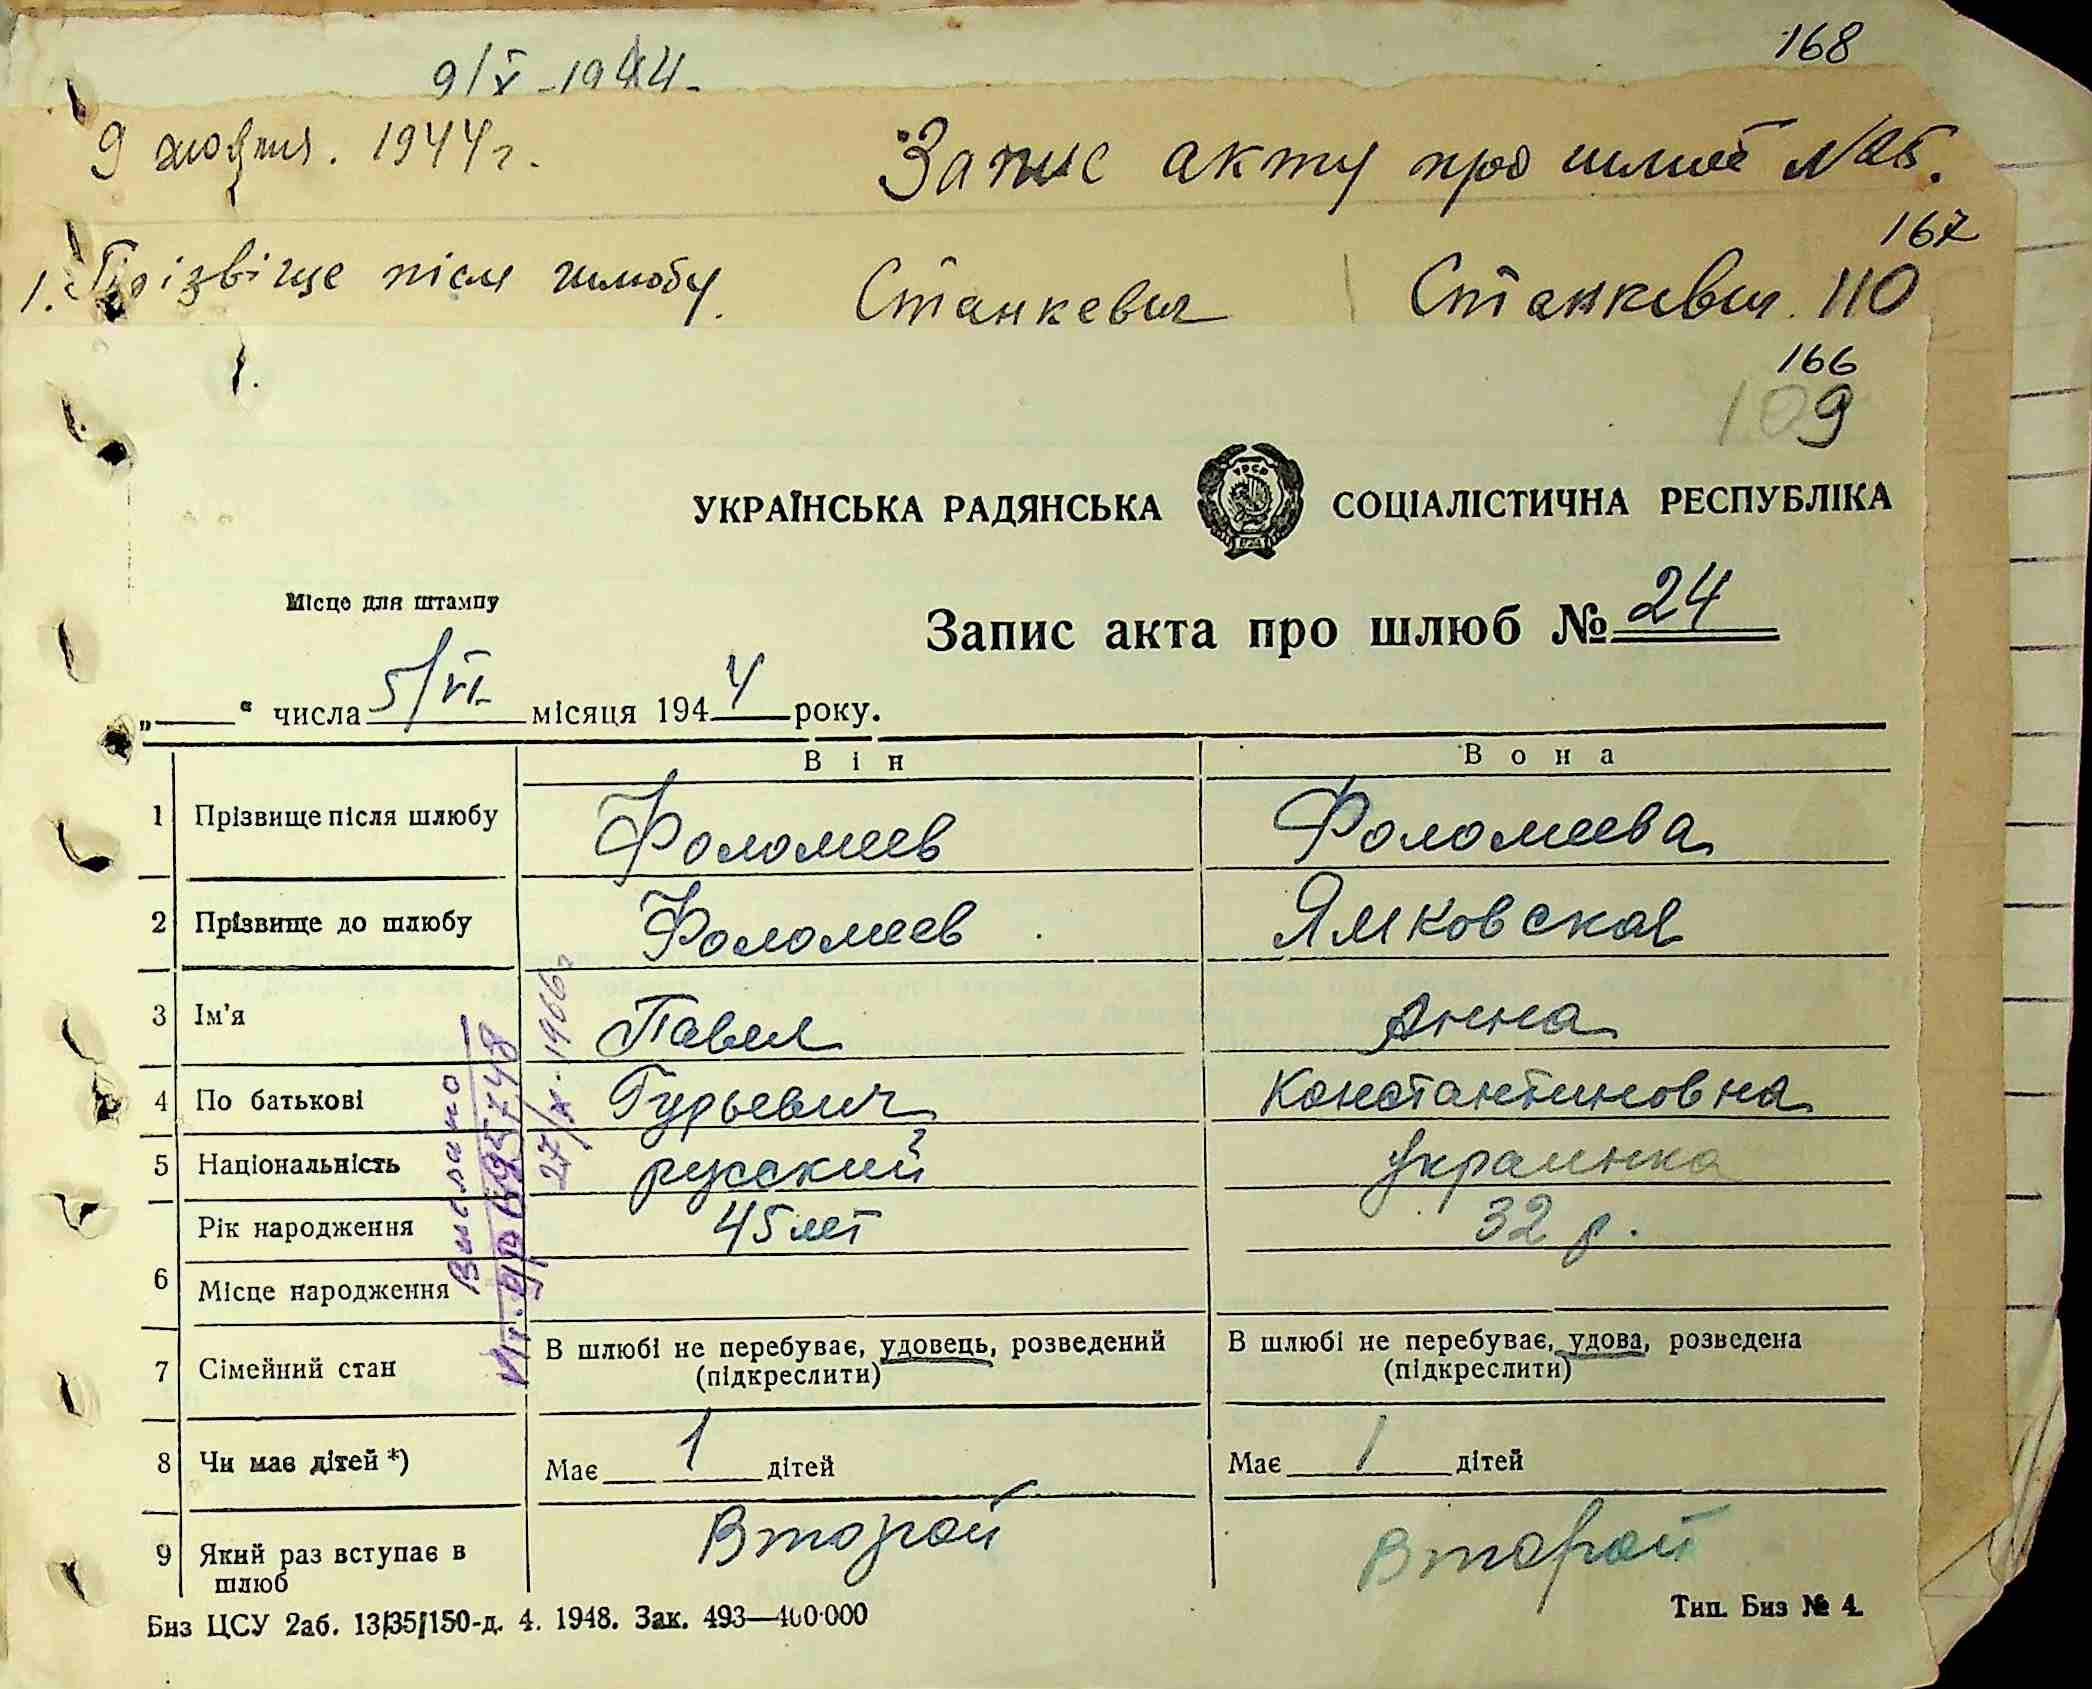 168
9/X-1944.
9 жовтня. 1944 г. Запис акту про шлюб №25.
167
1. Прізвіще після шлюбу. Станкевич Станкевич. 110
1.
166
109
УКРАЇНСЬКА РАДЯНСЬКА СОЦІАЛІСТИЧНА РЕСПУБЛІКА
Місце для штампу
Запис акта про шлюб № 24
„ “ числа 5/VI місяця 1944 року.
Він Вона
1 Прізвище після шлюбу Фоломеев Фоломеева
2 Прізвище до шлюбу Фоломеев Ямковская
3 Ім’я Павел Анна
4 По батькові Гурьевич Константиновна
5 Національність русский украинка
Рік народження 45 лет 32 р.
6 Місце народження
7 Сімейний стан В шлюбі не перебуває, удовець, розведений (підкреслити) В шлюбі не перебуває, удова, розведена (підкреслити)
8 Чи має дітей *) Має 1 дітей Має 1 дітей
9 Який раз вступає в шлюб Второй Второй
Выслано
27/X-1966 г
Биз ЦСУ 2аб. 13/35/150-д. 4. 1948. Зак. 493—400·000 Тип. Биз № 4.